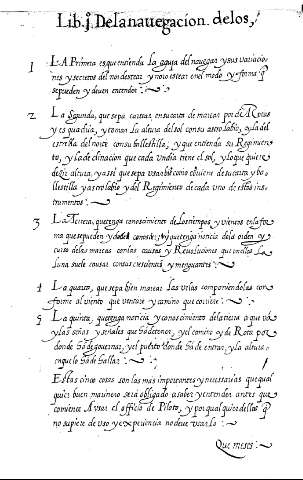 Lib. j. De la navegacion. de los,
1 LA Primera es que entienda la aguja del navegar y sus variacio
nes y secretos del nordestear y noroestear en el modo y forma q̃
se pueden y deven entender.
2 La Segunda, que sepa cartear, en su carta de marear por derrotas
y esquadria, y tomar la altura del sol con su astrolabio, y la del
estrella del norte con su ballestilla, y que entienda su Regimien
to, y la declinacion que cada un dia tiene el sol, y lo que quiere
dezir altura, y assi que sepa usar bien como conviene de su carta y ba
llestilla y astrolabio y del Regimiento de cada uno de estos ins
trumentos.
3 La Tercera, que tenga conoscimiento de los tiempos y vientos en la for
ma que se pueden y deven conoscer, y que tenga noticia de la orden y
curso de las mareas con las causas y Revoluciones que en ellas la
luna suele causar con sus crescientes y menguantes.
4 La quarta, que sepa bien marear las velas componiendolas con
forme al viento que ventare y camino que conviene.
5 La quinta, que tenga noticia y conoscimiento de la tierra a que va
y las señas y señales que ha de tener, y el camino y da Rota por
donde ha de governar, y el puerto donde ha de entrar, y la altura
en que lo ha de hallar.
Estas cinco cosas son las mas importantes y necessarias que qual
quier buen marinero será obligado a saber y entender antes que
comience A usar el officio de Piloto, y por qual quier dellas q̃
no supiere de uso y experiencia no deve usarlo.
Que meses